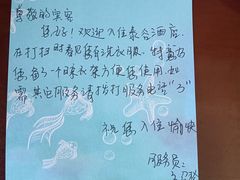 尊敬的宾客
您好！欢迎入住泰谷酒店.
在打扫时看见您有洗衣服，特意为
您留了一个晾衣架方便您使用.如
需其它服务请拨打服务电话“3”
祝您入住愉快
服务员：